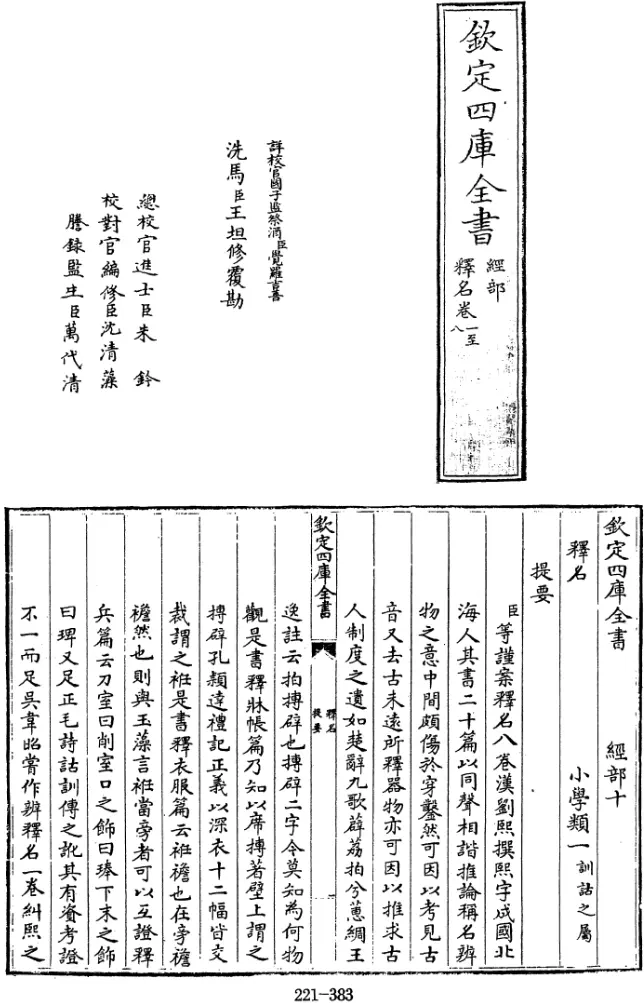 欽定四庫全書
經部
釋名卷一至八
詳校官國子監祭酒臣覺羅吉善
洗馬臣王坦修覆勘
總校官進士臣朱鈐
校對官編修臣沈清藻
謄錄監生臣萬代清
欽定四庫全書 經部十
釋名 小學類一訓詁之屬
提要
臣等謹案釋名八卷漢劉熙撰熙字成國北
海人其書二十篇以同聲相諧推論稱名辨
物之意中間頗傷於穿鑿然可因以考見古
音又去古未遠所釋器物亦可因以推求古
人制度之遺如楚辭九歌薜荔拍兮蕙綢王
欽定四庫全書 釋名 提要
逸註云拍搏辟也搏辟二字今莫知為何物
觀是書釋牀帳篇乃知以席搏著壁上謂之
搏辟孔穎達禮記正義以深衣十二幅皆交
裁謂之衽是書釋衣服篇云衽襜也在旁襜
襜然也則與玉藻言衽當旁者可以互證釋
兵篇云刀室曰削室口之飾曰琫下末之飾
曰琕又足正毛詩詁訓傳之訛其有資考證
不一而足吳韋昭嘗作辨釋名一卷糾熙之
221-383